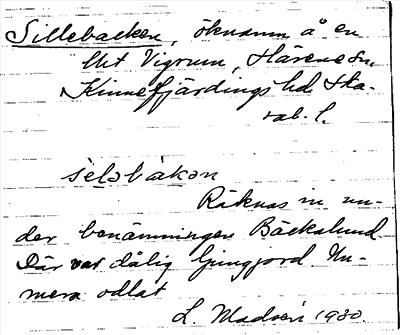 Sillebacken, öknamn å en
lht Vigrum, Härene sn,
Kinnefjärdings hd. Ska-
rab. l.
seləbakən
Räknas in un-
der benämningen Bäckalund
Där var dålig ljungjord. Nu-
mera odlat
L. 1930.